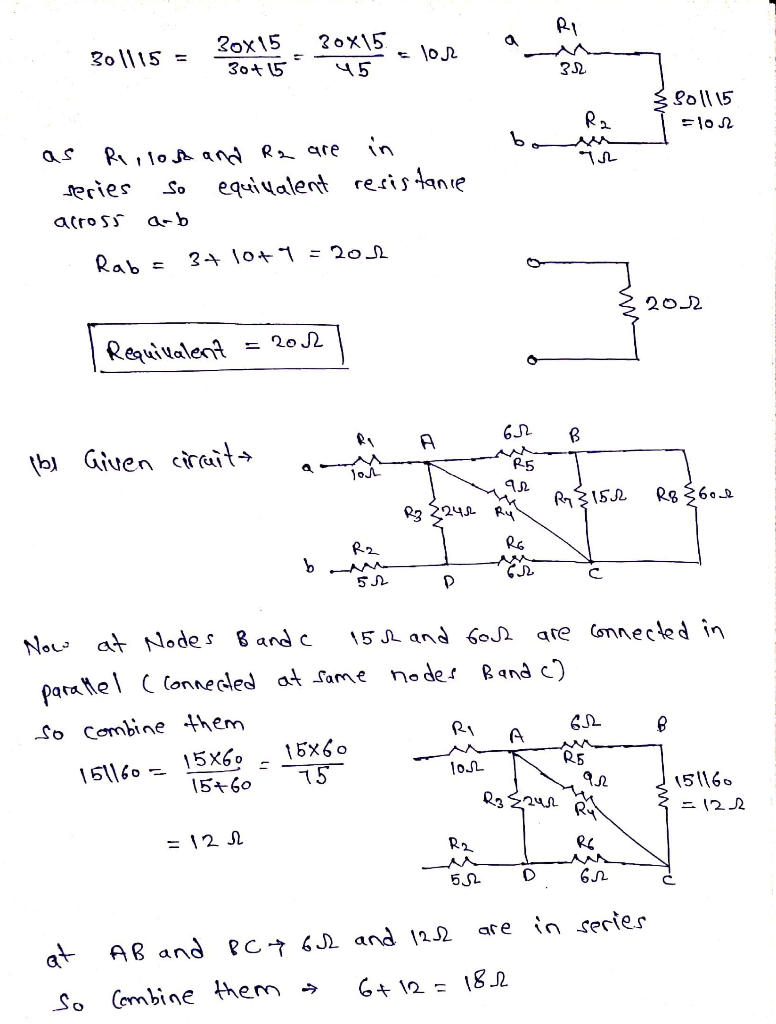 30||15 = 30×15/30+15 = 30×15/45 = 10Ω
a R1 3Ω
30||15 =10Ω
b R2 7Ω
as R1, 10Ω and R2 are in
series so equivalent resistance
across a-b
Rab = 3+10+7 = 20Ω
20Ω
Requivalent = 20Ω
(b) Given circuit→
a R1 10Ω A 6Ω R5 B
R3 24Ω 9Ω R4 R7 15Ω R8 60Ω
b R2 5Ω D R6 6Ω C
Now at Nodes B and C 15Ω and 60Ω are connected in
parallel (connected at same nodes B and C)
so combine them
15||60 = 15×60/15+60 = 15×60/75
= 12Ω
R1 10Ω A 6Ω R5 B
R3 24Ω 9Ω R4 15||60 =12Ω
R2 5Ω D R6 6Ω C
at AB and BC → 6Ω and 12Ω are in series
So Combine them → 6+12 = 18Ω